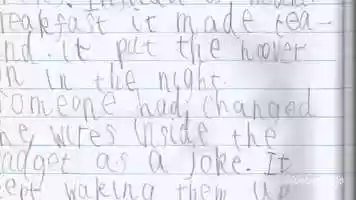 reakfast it made tea-
nd. it put the hoover
on in the night.
omeone had changed
he wires inside the
adget as a joke. It
ept waking them up